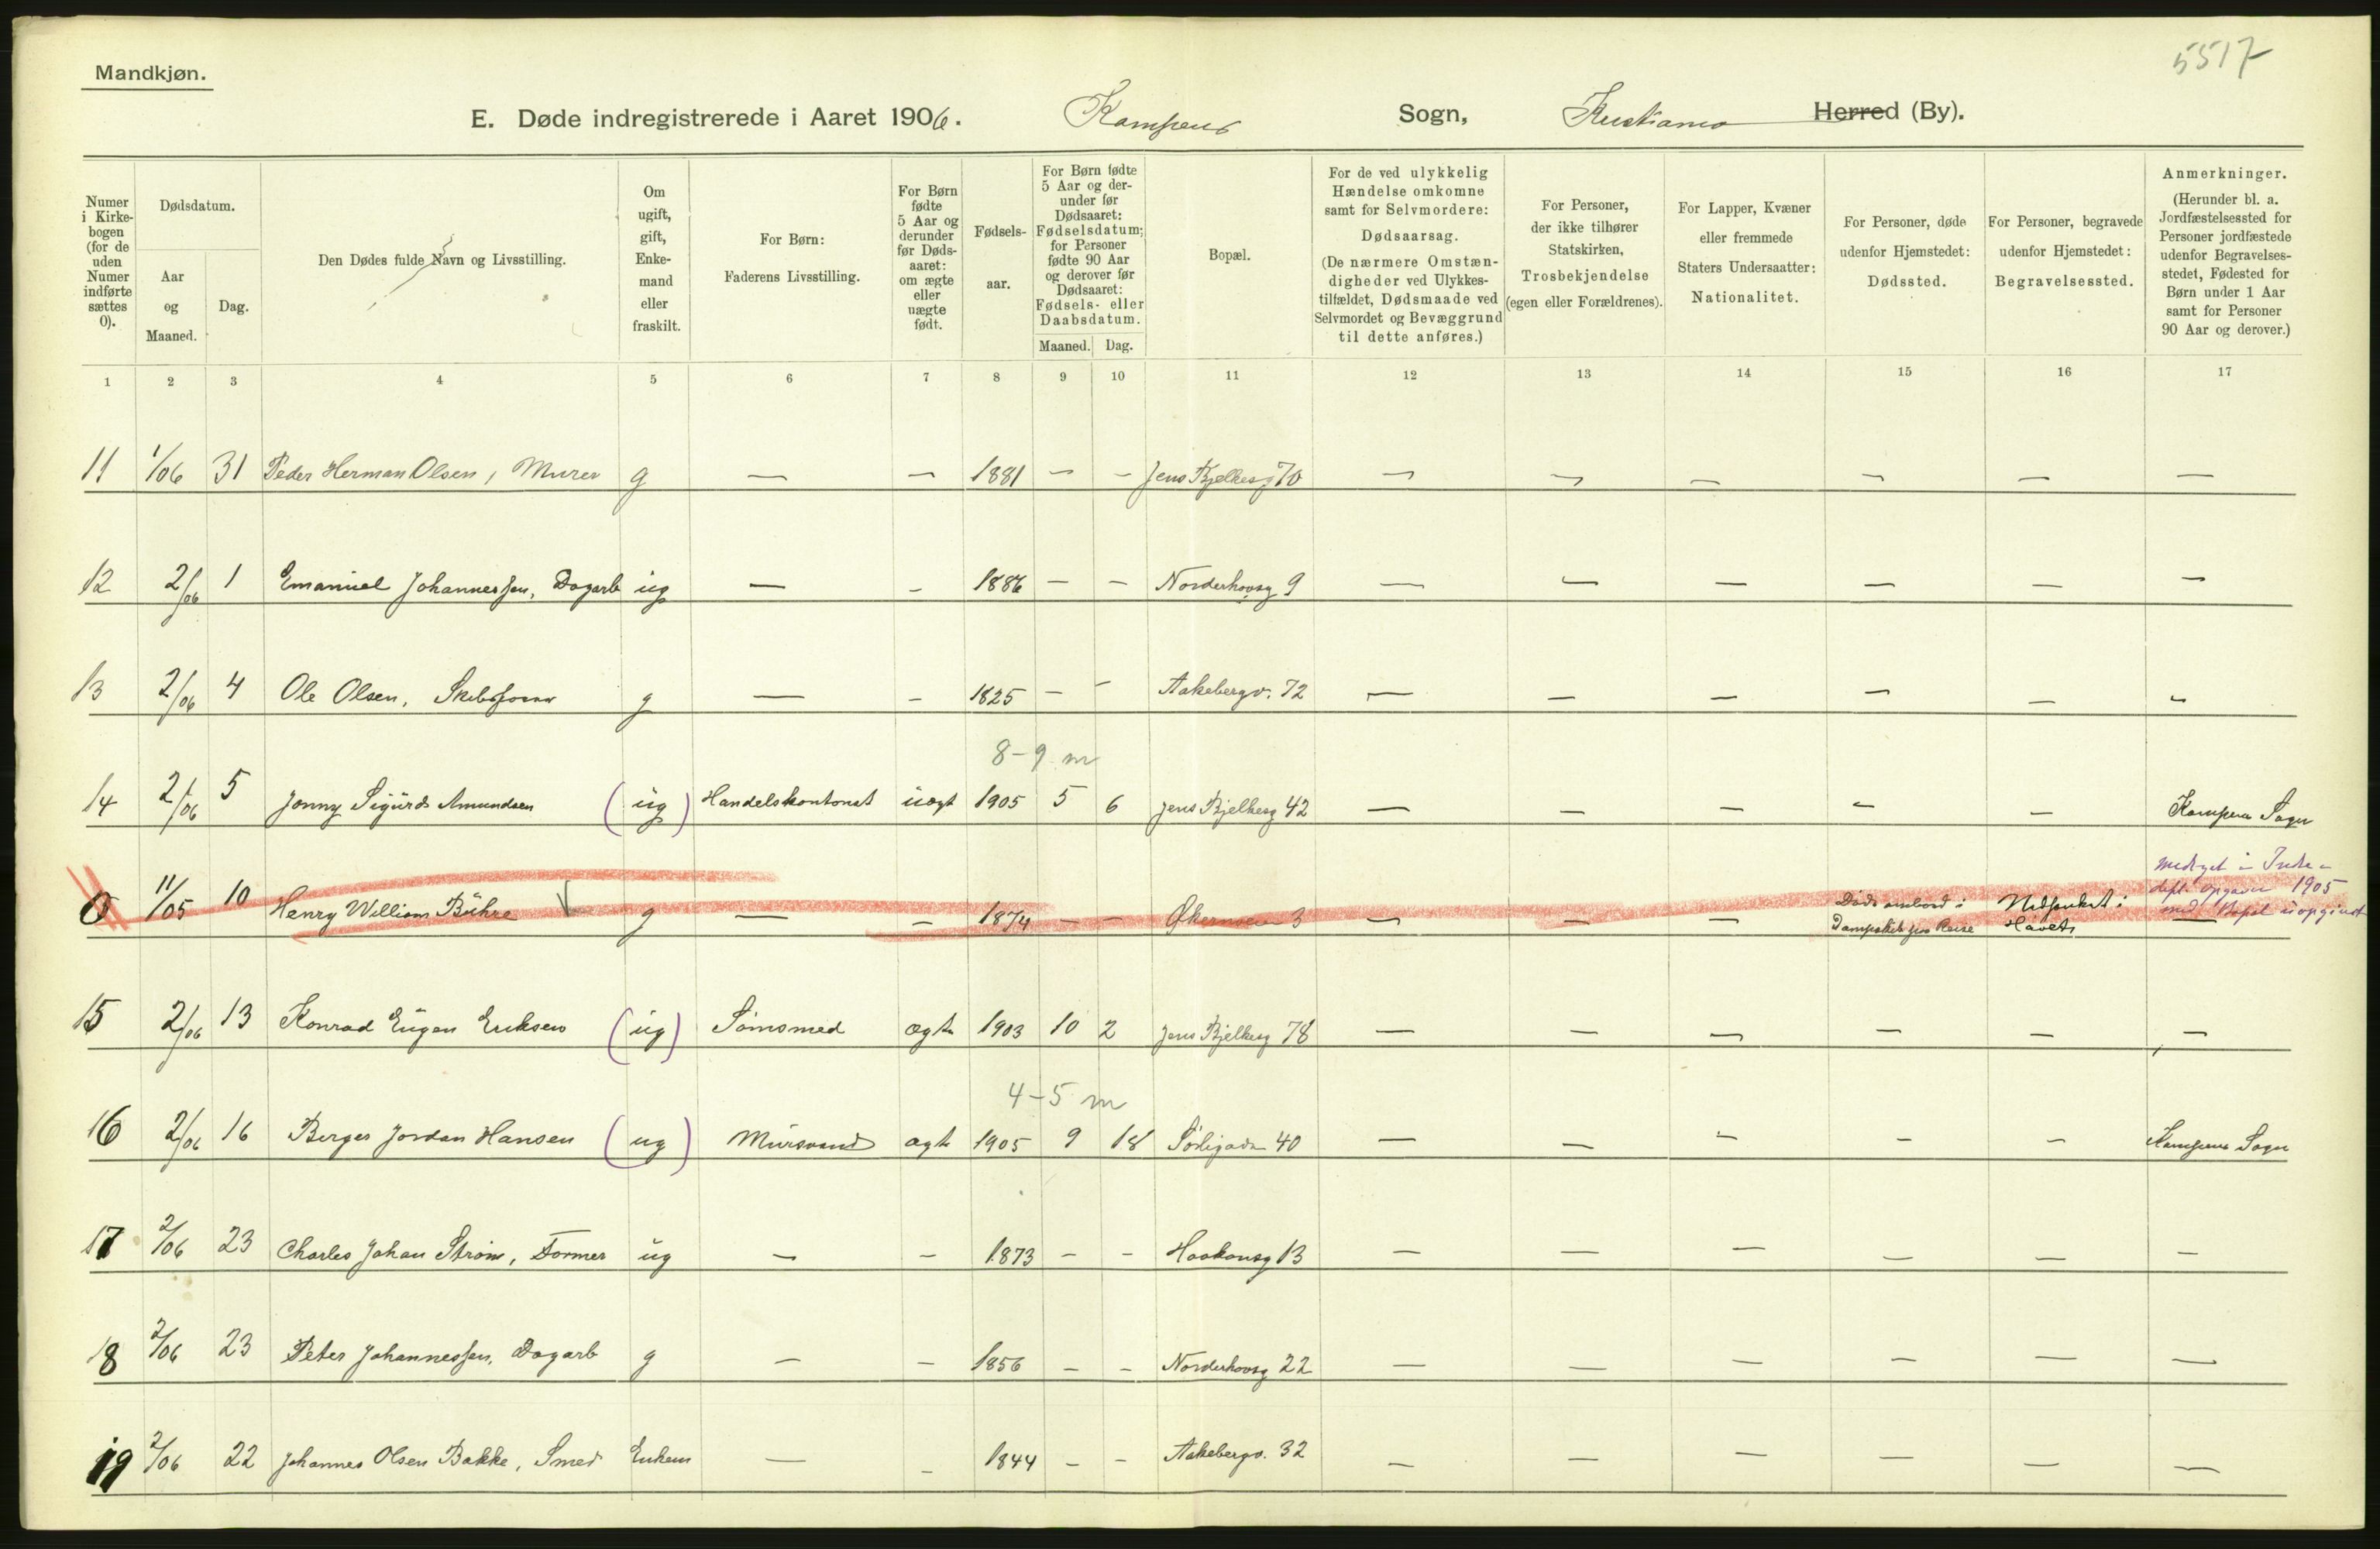 5517
Mandkjøn.
E. Døde indregistrerede i Aaret 1906. Kampens Sogn, Kristiania Herred (By).
Numer i Kirkebogen (for de uden Numer indførte sættes 0).
Dødsdatum.
Aar og Maaned.
Dag.
Den Dødes fulde Navn og Livsstilling.
Om ugift, gift, Enkemand eller fraskilt.
For Børn: Faderens Livsstilling.
For Børn fødte 5 Aar og derunder før Dødsaaret: om ægte eller uægte født.
Fødselsaar.
For Børn fødte 5 Aar og derunder før Dødsaaret: Fødselsdatum; for Personer fødte 90 Aar og derover før Dødsaaret: Fødsels- eller Daabsdatum.
Maaned. Dag.
Bopæl.
For de ved ulykkelig Hændelse omkomne samt for Selvmordere: Dødsaarsag. (De nærmere Omstændigheder ved Ulykkestilfældet, Dødsmaade ved Selvmordet og Bevæggrund til dette anføres.)
For Personer, der ikke tilhører Statskirken, Trosbekjendelse (egen eller Forældrenes).
For Lapper, Kvæner eller fremmede Staters Undersaatter: Nationalitet.
For Personer, døde udenfor Hjemstedet: Dødssted.
For Personer, begravede udenfor Hjemstedet: Begravelsessted.
Anmerkninger. (Herunder bl. a. Jordfæstelsessted for Personer jordfæstede udenfor Begravelsesstedet, Fødested for Børn under 1 Aar samt for Personer 90 Aar og derover.)
1 2 3 4 5 6 7 8 9 10 11 12 13 14 15 16 17
11 1/06 31 Peder Herman Olsen, Murer g — — 1881 — — Jens Bjelkesg 70 — — — — — —
12 2/06 1 Emanuel Johannessen, Dagarb ug — — 1886 — — Norderhovsg 9 — — — — — —
13 2/06 4 Ole Olsen, Skibstømr g — — 1825 — — Aakebergv. 72 — — — — — —
8-9 m
14 2/06 5 Jonny Sigurd Amundsen (ug) Handelskontorist uægt 1905 5 6 Jens Bjelkesg 42 — — — — — Kampens Sogn
0 11/05 10 Henry William Bühre g — — 1874 — — Økernveien 3 — — — Døde ombord i Dampskib paa Reise Nedsænket i Havet medtaget i Indre- dept. opgaver 1905 med Bopæl uopgivet —
15 2/06 13 Konrad Eugen Eriksen (ug) Sømsmed ægte 1903 10 2 Jens Bjelkesg 78 — — — — — —
4-5 m
16 2/06 16 Birger Jordan Hansen (ug) Mursvend ægte 1905 9 18 Sørligada 40 — — — — — Kampens Sogn
17 2/06 23 Charles Johan Strøm, Former ug — — 1873 — — Haakonsg 13 — — — — — —
18 2/06 23 Peter Johannessen, Dagarb g — — 1856 — — Norderhovsg 22 — — — — — —
19 2/06 22 Johannes Olsen Bakke, Smed Enkem — — 1844 — — Aakebergv. 32 — — — — — —